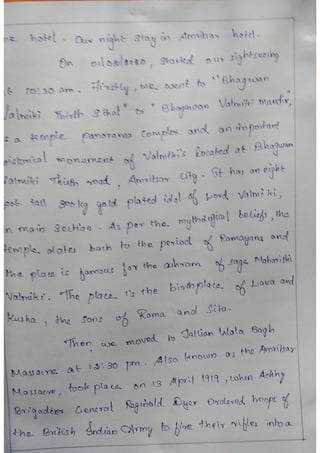 he hotel. Our night stay in Amritsar hotel.
On 01/02/2020, started our sightseeing
at 10:30 am. Firstly, we went to "Bhagwan
Valmiki Thirth Sthal" or "Bhagawan Valmiki mandir",
is a temple panorama complex and an important
historical monument of Valmiki's located at Bhagwan
Valmiki Thirth road, Amritsar City. It has an eight
foot tall 800kg gold plated idol of Lord Valmiki,
in main section. As per the mythological beliefs, the
temple dates back to the period of Ramayana and
the place is famous for the ashram of sage Maharishi
Valmiki. The place is the birthplace of Lava and
Kusha, the sons of Rama and Sita.
Then we moved to Jallian Wala Bagh
Massacre at 12:30 pm. Also known as the Amritsar
Massacre, took place on 13 April 1919, when Acting
Brigadier General Reginold Dyer Ordered troops of
the British Indian Army to fire their rifles into a